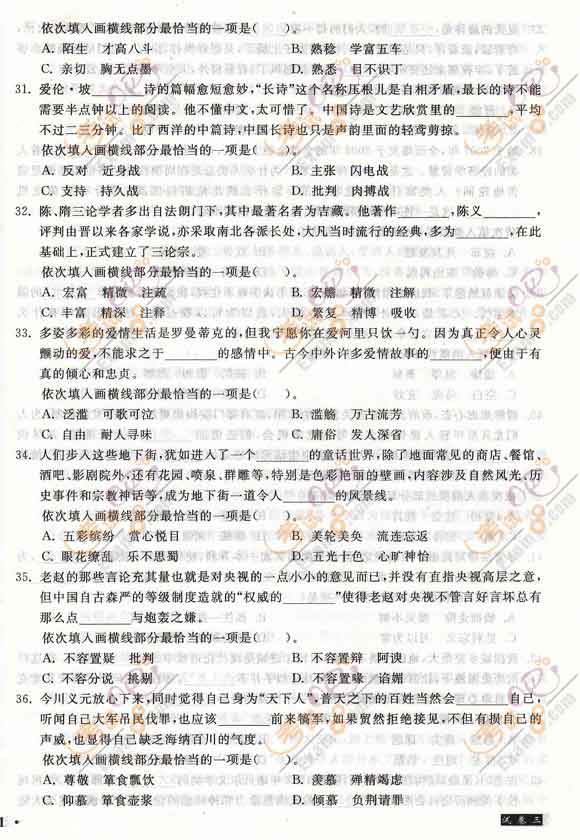 依次填入画横线部分最恰当的一项是( )。
A. 陌生 才高八斗 B. 熟稔 学富五车
C. 亲切 胸无点墨 D. 熟悉 目不识丁
31. 爱伦·坡______诗的篇幅愈短愈妙,“长诗”这个名称压根儿是自相矛盾,最长的诗不能
需要半点钟以上的阅读。他不懂中文,太可惜了。中国诗是文艺欣赏里的______,平均
不过二三分钟。比了西洋的中篇诗,中国长诗也只是声韵里面的轻鸢剪掠。
依次填入画横线部分最恰当的一项是( )。
A. 反对 近身战 B. 主张 闪电战
C. 支持 持久战 D. 批判 肉搏战
32. 陈、隋三论学者多出自法朗门下,其中最著名者为吉藏。他著作______,陈义______,
评判由晋以来各家学说,亦采取南北各派长处,大凡当时流行的经典,多为______,在此
基础上,正式建立了三论宗。
依次填入画横线部分最恰当的一项是( )。
A. 宏富 精微 注疏 B. 宏赡 精微 注解
C. 丰富 精深 注释 D. 繁复 精博 吸收
33. 多姿多彩的爱情生活是罗曼蒂克的,但我宁愿你在爱河里只饮一勺。因为真正令人心灵
颤动的爱,不能求之于______的感情中。古今中外许多爱情故事的______,便由于有
真的倾心和忠贞。
依次填入画横线部分最恰当的一项是( )。
A. 泛滥 可歌可泣 B. 滥觞 万古流芳
C. 自由 耐人寻味 D. 庸俗 发人深省
34. 人们步入这些地下街,犹如进入了一个______的童话世界,除了地面常见的商店、餐馆、
酒吧、影剧院外,还有花园、喷泉、群雕等,特别是色彩艳丽的壁画,内容涉及自然风光、历
史事件和宗教神话等,成为地下街一道令人______的风景线。
依次填入画横线部分最恰当的一项是( )。
A. 五彩缤纷 赏心悦目 B. 美轮美奂 流连忘返
C. 眼花缭乱 乐不思蜀 D. 五光十色 心旷神怡
35. 老赵的那些言论充其量也就是对央视的一点小小的意见而已,并没有直指央视高层之意,
但中国自古森严的等级制度造就的“权威的______”使得老赵对央视不管言好言坏总有
那么点______与炮轰之嫌。
依次填入画横线部分最恰当的一项是( )。
A. 不容置疑 批判 B. 不容置辩 阿谀
C. 不容分说 挑剔 D. 不容置喙 谄媚
36. 今川义元放心下来,同时觉得自己身为“天下人”,普天之下的百姓当然会______自己,
听闻自己大军吊民伐罪,也应该______前来犒军,如果贸然拒绝接见,不但有损自己的
声威,也显得自己缺乏海纳百川的气度。
依次填入画横线部分最恰当的一项是( )。
A. 尊敬 箪食瓢饮 B. 羡慕 殚精竭虑
C. 仰慕 箪食壶浆 D. 倾慕 负荆请罪
试卷三